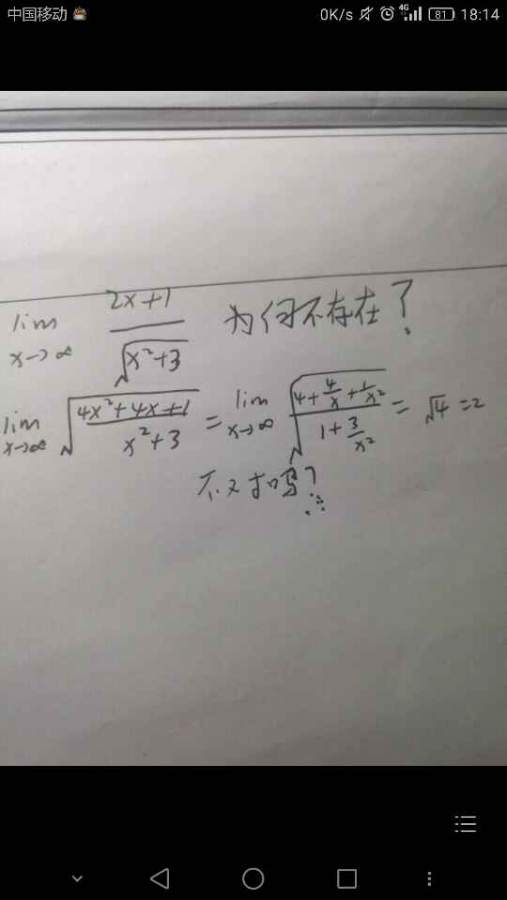 中国移动 0K/s 4G 81 18:14
lim x→∞ (2x+1)/√(x²+3) 为何不存在？
lim x→∞ √((4x²+4x+1)/(x²+3)) = lim x→∞ √((4+4/x+1/x²)/(1+3/x²)) = √4 =2
不对吗？